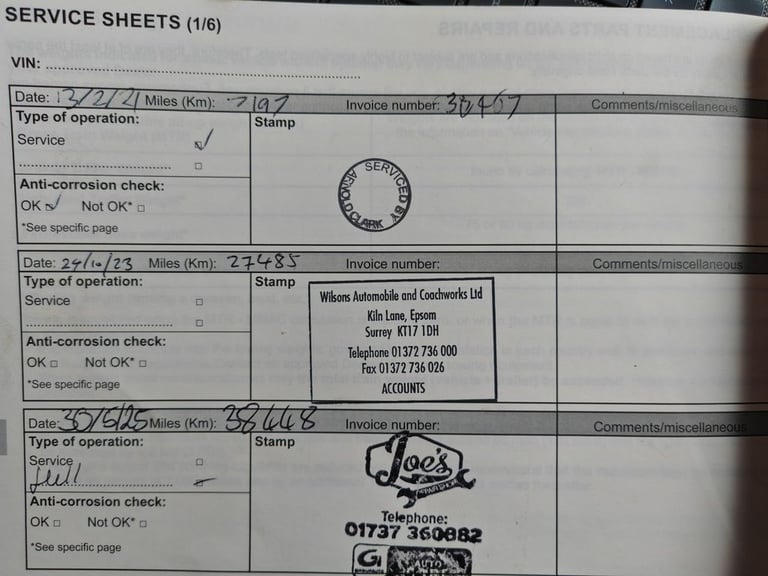 SERVICE SHEETS (1/6)
VIN:
Date: 13/2/21 Miles (Km): 7197 Invoice number: 30467 Comments/miscellaneous
Type of operation: Stamp
Service
Anti-corrosion check:
OK Not OK*
*See specific page
SERVICED BY
ARNOLD CLARK
Date: 24/10/23 Miles (Km): 27485 Invoice number: Comments/miscellaneous
Type of operation: Stamp
Service
Anti-corrosion check:
OK Not OK*
*See specific page
Wilsons Automobile and Coachworks Ltd
Kiln Lane, Epsom
Surrey KT17 1DH
Telephone 01372 736 000
Fax 01372 736 026
ACCOUNTS
Date: 30/6/25 Miles (Km): 38448 Invoice number: Comments/miscellaneous
Type of operation: Stamp
Service
full
Anti-corrosion check:
OK Not OK*
*See specific page
Joe's
REPAIR SHOP
Telephone:
01737 360882
AUTO